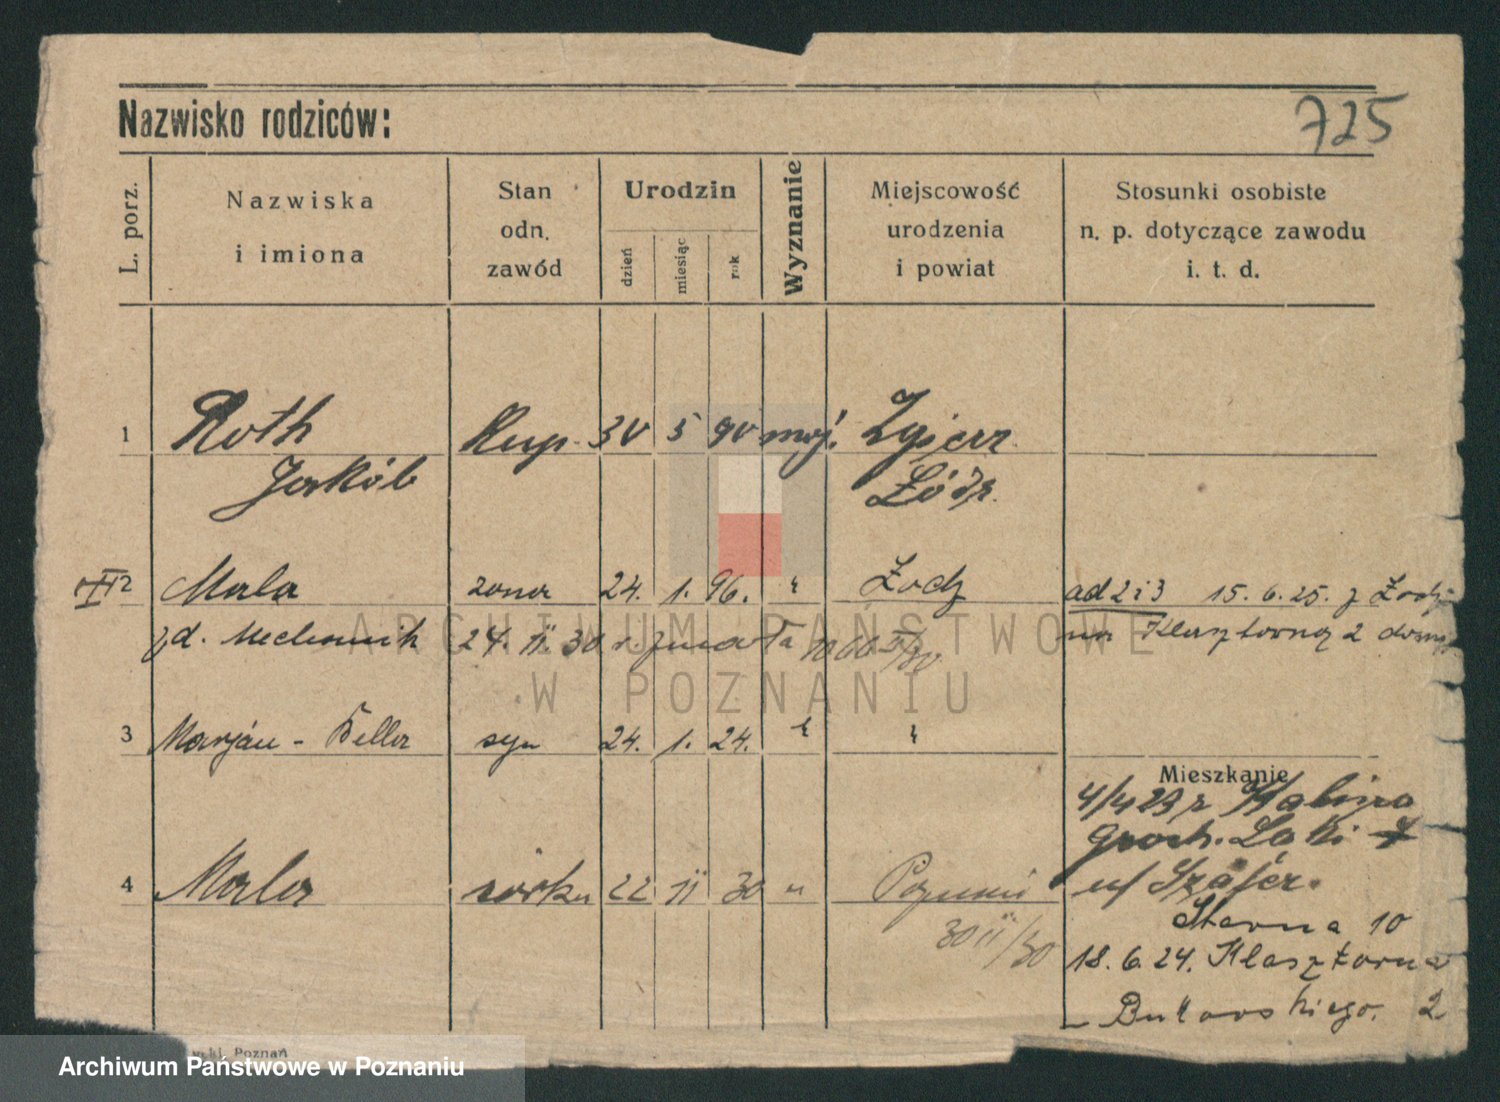 725
Nazwisko rodziców:
L. porz.
Nazwiska
i imiona
Stan
odn.
zawód
Urodzin
dzień
miesiąc
rok
Wyznanie
Miejscowość
urodzenia
i powiat
Stosunki osobiste
n. p. dotyczące zawodu
i. t. d.
1 Roth Kup. 30 5 90 mojż. Zgierz
Jakób Łódź.
2 Mala żona 24. 1. 96. " Łodz ad 2 i 3 15. 6. 25. z Łodzi
zd. 24. II. 30 r. zmarła na Klasztorną 2 dom
3 Marjan - syn 24. 1. 24. " "
Mieszkanie
4/4 23 z Kalisza
Groch. Łąki 7
u/ Szafer.
4 Mala córka 22 II 30 " Poznań
30 II/30
Sławna 10
18. 6. 24. Klasztorna
- Bukowskiego. 2
ARCHIWUM PAŃSTWOWE
W POZNANIU
Poznań
Archiwum Państwowe w Poznaniu